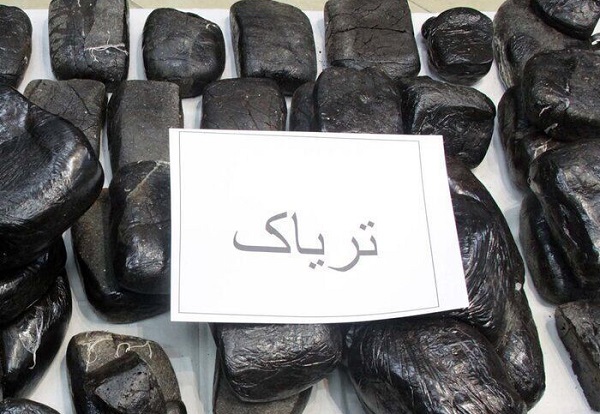 تریاک